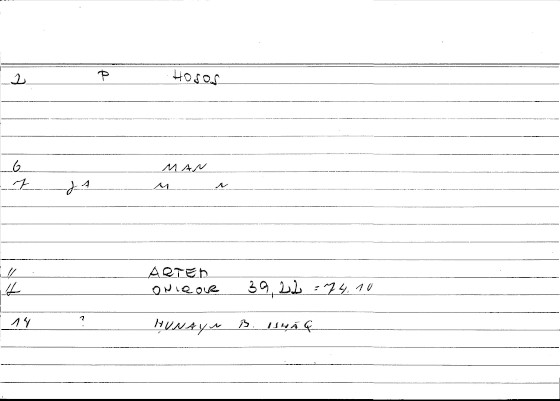 2 P HOSOS
6 MAN
7 J1 M N
11 ARTEM
12 ONIROUR 39,22 = 74.10
14 ? HUNAYN B. ISHAQ